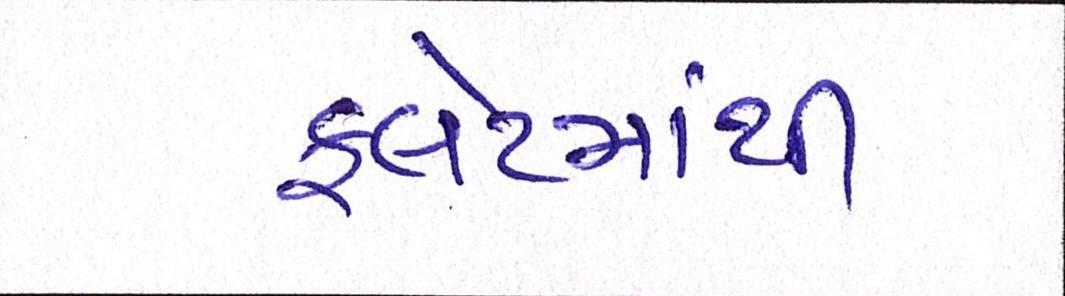 ફ્લેટમાંથી